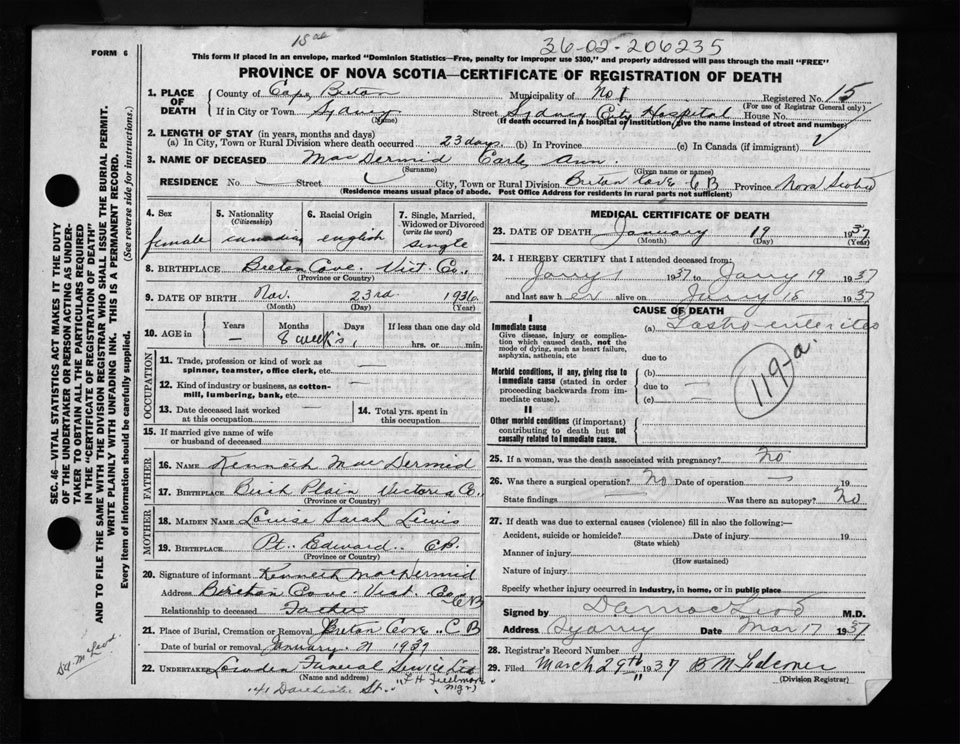 36-02-206235
FORM 6
This form if placed in an envelope, marked "Dominion Statistics—Free, penalty for improper use $300," and properly addressed will pass through the mail "FREE"
PROVINCE OF NOVA SCOTIA—CERTIFICATE OF REGISTRATION OF DEATH
1. PLACE OF DEATH { County of Cape Breton Municipality of No 1 Registered No. 15
(For use of Registrar General only)
If in City or Town Sydney Street Sydney City Hospital House No.
(Name) (If death occurred in a hospital or institution, give the name instead of street and number)
2. LENGTH OF STAY (in years, months and days)
(a) In City, Town or Rural Division where death occurred 23 days (b) In Province (c) In Canada (if immigrant)
3. NAME OF DECEASED MacDermid Ann.
(Surname) (Given name or names)
RESIDENCE No. Street City, Town or Rural Division Breton Cove C B Province Nova Scotia
(Residence means usual place of abode. Post Office Address for residents in rural parts not sufficient)
4. Sex female
5. Nationality (Citizenship) canadian
6. Racial Origin english
7. Single, Married, Widowed or Divorced (write the word) single
8. BIRTHPLACE Breton Cove Vict. Co.,
(Province or Country)
9. DATE OF BIRTH Nov. 23rd 1936
(Month) (Day) (Year)
10. AGE in { Years — Months 8 week's Days If less than one day old hrs. or min.
OCCUPATION
11. Trade, profession or kind of work as spinner, teamster, office clerk, etc. —
12. Kind of industry or business, as cotton-mill, lumbering, bank, etc. —
13. Date deceased last worked at this occupation —
14. Total yrs. spent in this occupation
15. If married give name of wife or husband of deceased
FATHER
16. NAME Kenneth MacDermid
17. BIRTHPLACE Birch Plain Victoria Co.
(Province or Country)
MOTHER
18. MAIDEN NAME Louise Sarah Lewis
19. BIRTHPLACE Pt. Edward. CB.
(Province or Country)
20. Signature of informant Kenneth MacDermid
Address Breton Cove Vict. Co. C B
Relationship to deceased Father
21. Place of Burial, Cremation or Removal Breton Cove C B
Date of burial or removal January 21 1937
22. UNDERTAKER Funeral Service Ltd
(Name and address)
41 Dorchester St.
Mgr
MEDICAL CERTIFICATE OF DEATH
23. DATE OF DEATH January 19 1937
(Month) (Day) (Year)
24. I HEREBY CERTIFY that I attended deceased from:
Janry 1 1937 to Janry 19 1937
and last saw her alive on Janry 18 1937
CAUSE OF DEATH
I
Immediate cause
Give disease, injury or complication which caused death, not the mode of dying, such as heart failure, asphyxia, asthenia, etc
(a) Gastro-enteritis
due to
Morbid conditions, if any, giving rise to immediate cause (stated in order proceeding backwards from immediate cause).
(b) —
due to —
(c) —
119-a.
II
Other morbid conditions (if important) contributing to death but not causally related to immediate cause.
25. If a woman, was the death associated with pregnancy? No
26. Was there a surgical operation? No Date of operation — 19
State findings — Was there an autopsy? No
27. If death was due to external causes (violence) fill in also the following:—
Accident, suicide or homicide? Date of injury 19
(State which)
Manner of injury
(How sustained)
Nature of injury
Specify whether injury occurred in industry, in home, or in public place
Signed by D A MacLeod M.D.
Address Sydney Date Mar 17 1937
28. Registrar's Record Number
29. Filed March 29th 1937 B M Falconer
(Division Registrar)
SEC. 46—VITAL STATISTICS ACT MAKES IT THE DUTY
OF THE UNDERTAKER OR PERSON ACTING AS UNDER-
TAKER TO OBTAIN ALL THE PARTICULARS REQUIRED
IN THE "CERTIFICATE OF REGISTRATION OF DEATH"
AND TO FILE THE SAME WITH THE DIVISION REGISTRAR WHO SHALL ISSUE THE BURIAL PERMIT.
WRITE PLAINLY WITH UNFADING INK. THIS IS A PERMANENT RECORD.
Every item of information should be carefully supplied. (See reverse side for instructions.)
Dr. McLeod.